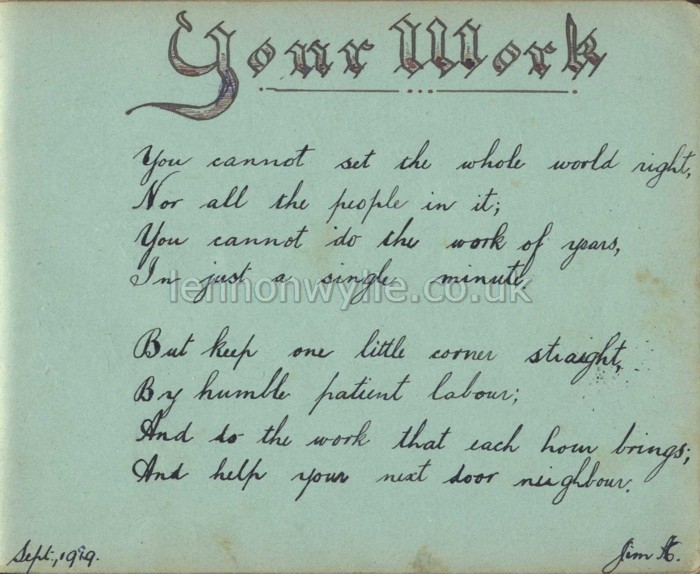 Your Work
You cannot set the whole world right,
Nor all the people in it;
You cannot do the work of years,
In just a single minute.
lennonwylie.co.uk
But keep one little corner straight,
By humble patient labour;
And do the work that each hour brings;
And help your next door neighbour.
Sept., 1929.
Jim A.